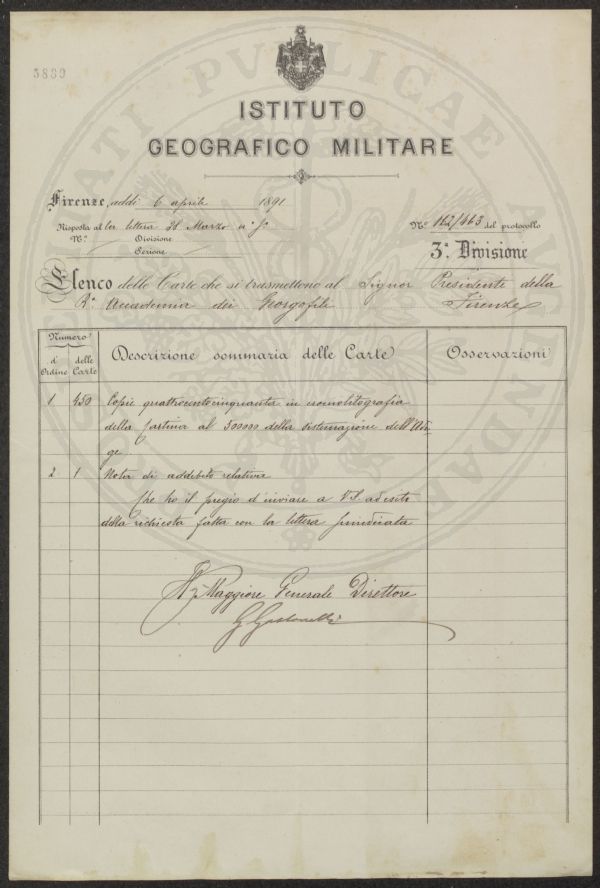 3899
ISTITUTO
GEOGRAFICO MILITARE
Firenze, addì 6 aprile 1891
Risposta al la lettera 28 Marzo u° s°
N.° Divisione
Sezione
N.° 162/463 del protocollo
3.ª Divisione
Elenco delle Carte che si trasmettono al Signor Presidente della
R.ª Accademia dei Georgofili Firenze
Numero
d' Ordine
delle Carte
Descrizione sommaria delle Carte
Osservazioni
1 450 Copie quattrocentocinquanta in cromolitografia
della cartina al 300000 della sistemazione dell'
2 1 Nota di addebito relativa
Che ho il pregio d'inviare a V.S. ad esito
della richiesta fatta con la lettera
Il Maggiore Generale Direttore